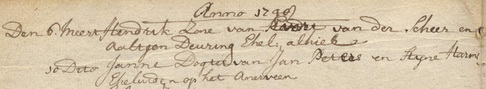 Anno 1790
Den 6 Meert Hendrik Zone van Evert van der Scheer en
Aaltjen Deuring Ehel. alhier
30 Dito Janne Dogter van Jan Peters en Stijne Harms
Eheluiden op het Anerveen